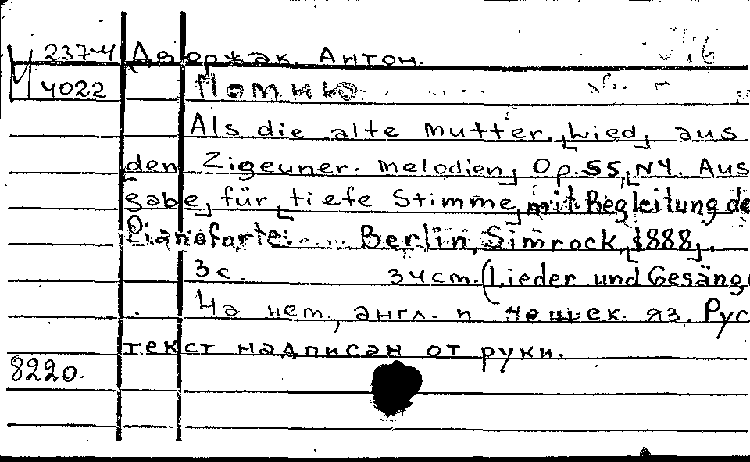 2374 Дворжак, Антон.
4022 Помню
Als die alte Mutter, Lied, aus
den Zigeuner-Melodien, Op.55, N4. Aus
gabe, für tiefe Stimme, mit Begleitung de
Pianoforte. Berlin, Simrock, 1888,
3с. 34cm. (Lieder und Gesäng
На нем., англ. и чешск. яз. Рус
текст надписан от руки.
8220.